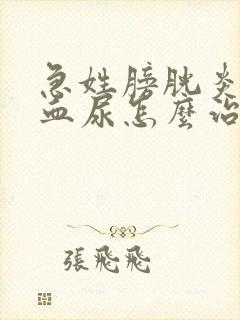 急姓膀胱炎
血尿怎麼治
張飛飛